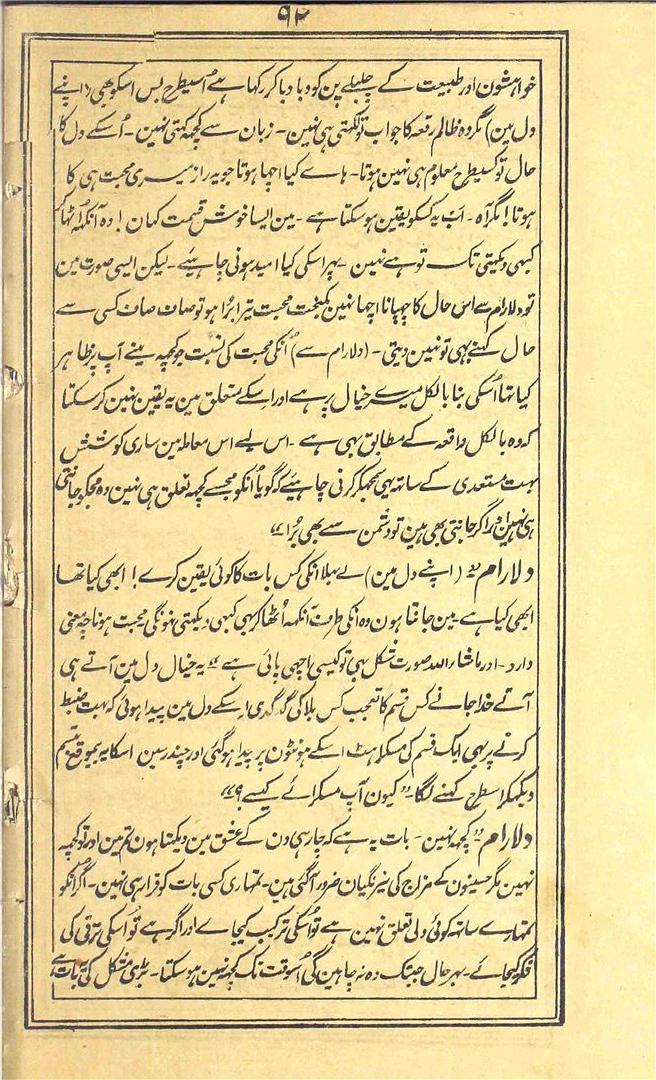 ۹۲
خواہشون اور طبیعت کے چلبلے پن کو دبا دبا کر رکہا ہے اُسیطرح بس اسکو بھی (اپنے
دل مین) مگر وہ ظالم رقعہ کا جواب تو لکہتی ہی نہین - زبان سے کچہہ کہتی نہین - اُسکے دل کا
حال تو کسیطرح معلوم ہی نہین ہوتا - ہاے کیا اچہا ہوتا جو یہ راز میری محبت ہی کا
ہوتا! مگر آہ - اَب یہ کسکو یقین ہو سکتا ہے - مین ایسا خوش قسمت کہان! وہ آنکہہ اُٹھا کر
کبھی دیکہتی تک تو ہے نہین - پہر اسکی کیا امید ہونی چاہیئے - لیکن ایسی صورت مین
تو دلارام سے اس حال کا چہپانا اچہا نہین کمبخت محبت تیرا بُرا ہو تو صاف صاف کسی سے
حال کہنے بہی تو نہین دیتی - (دلارام سے) اُنکی محبت کی نسبت جو کچہہ مینے آپ پر ظاہر
کیا تہا اُسکی بنا بالکل میرے خیال پر ہے اور اسکے متعلق مین یہ یقین نہین کر سکتا
کہ وہ بالکل واقعہ کے مطابق بہی ہے - اس لیے اس معاملہ مین ساری کوششش
بہت مستعدی کے ساتہہ یہی سمجہکر کرنی چاہیئے کہ گویا اُنکو مجہسے کچہہ تعلق ہی نہین وہ مجکو جانتی
ہی نہین اور اگر جانتی بھی ہین تو دشمن سے بھی بُرا ؎؎
دلارام ؎ (اپنے دل مین) اے بہلا انکی کس بات کا کوئی یقین کرے! ابھی کیا تھا
ابھی کیا ہے - مین جانتا ہون وہ انکی طرف آنکہہ اُٹھا کر بہی کبہی دیکہتی نہونگی محبت ہونا چہ معنی
دارد - اور ماشاراللہ صورت شکل بہی تو کیسی اچہی پائی ہے ؎؎ یہ خیال دل مین آتے ہی
آتے خدا جانے کس قسم کا تعجب کس بلا کی گدگدی اسکے دل مین پیدا ہوئی کہ بہت ضبط
کرنے پر بہی ایک قسم کی مسکراہٹ اسکے ہونٹون پر پیدا ہو گئی اور چندرسین اسکا یہ بیموقع تبسم
دیکہکر اسطرح کہنے لگا - ؎ کیون آپ مسکرائے کیسے؟ ؎؎
دلارام ؎ کچہہ نہین - بات یہ ہے کہ چار ہی دن کے عشق مین دیکہتا ہون تم مین اور تو کچہہ
نہین مگر حسینون کے مزاج کی نیرنگیان ضرور آ گئی ہین - تمہاری کسی بات کو قرار ہی نہین - اگر اُنکو
تمہارے ساتہہ کوئی دلی تعلق نہین ہے تو اُسکی ترکیب کیجاے اور اگر ہے تو اُسکی ترقی کی
فکر کیجائے - بہر حال جبتک وہ نہ چاہین گی اُسوقت تک کچہہ نہین ہو سکتا - بڑی مشکل کی بات ہے